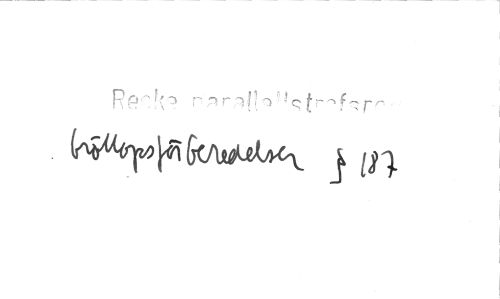 Recke parallellstrafsreg
bröllopsförberedelser § 187